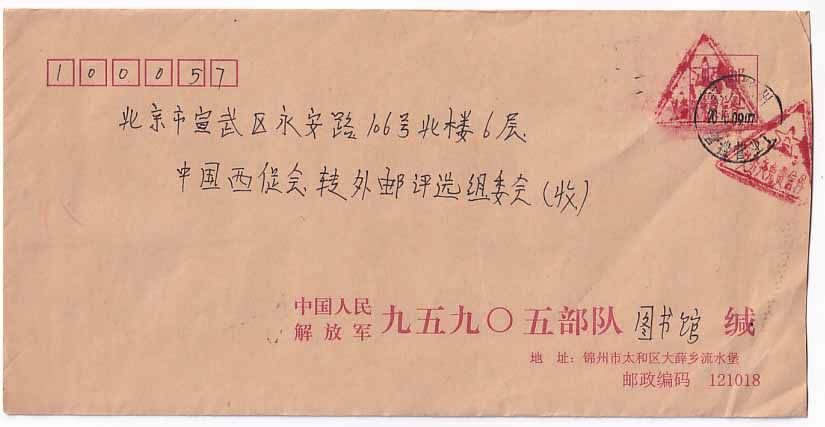 100057
北京市宣武区永安路106号北楼6层
中国西促会转外邮评选组委会(收)
中国人民
解放军
九五九〇五部队 图书馆 缄
地 址: 锦州市太和区大薛乡流水堡
邮政编码 121018